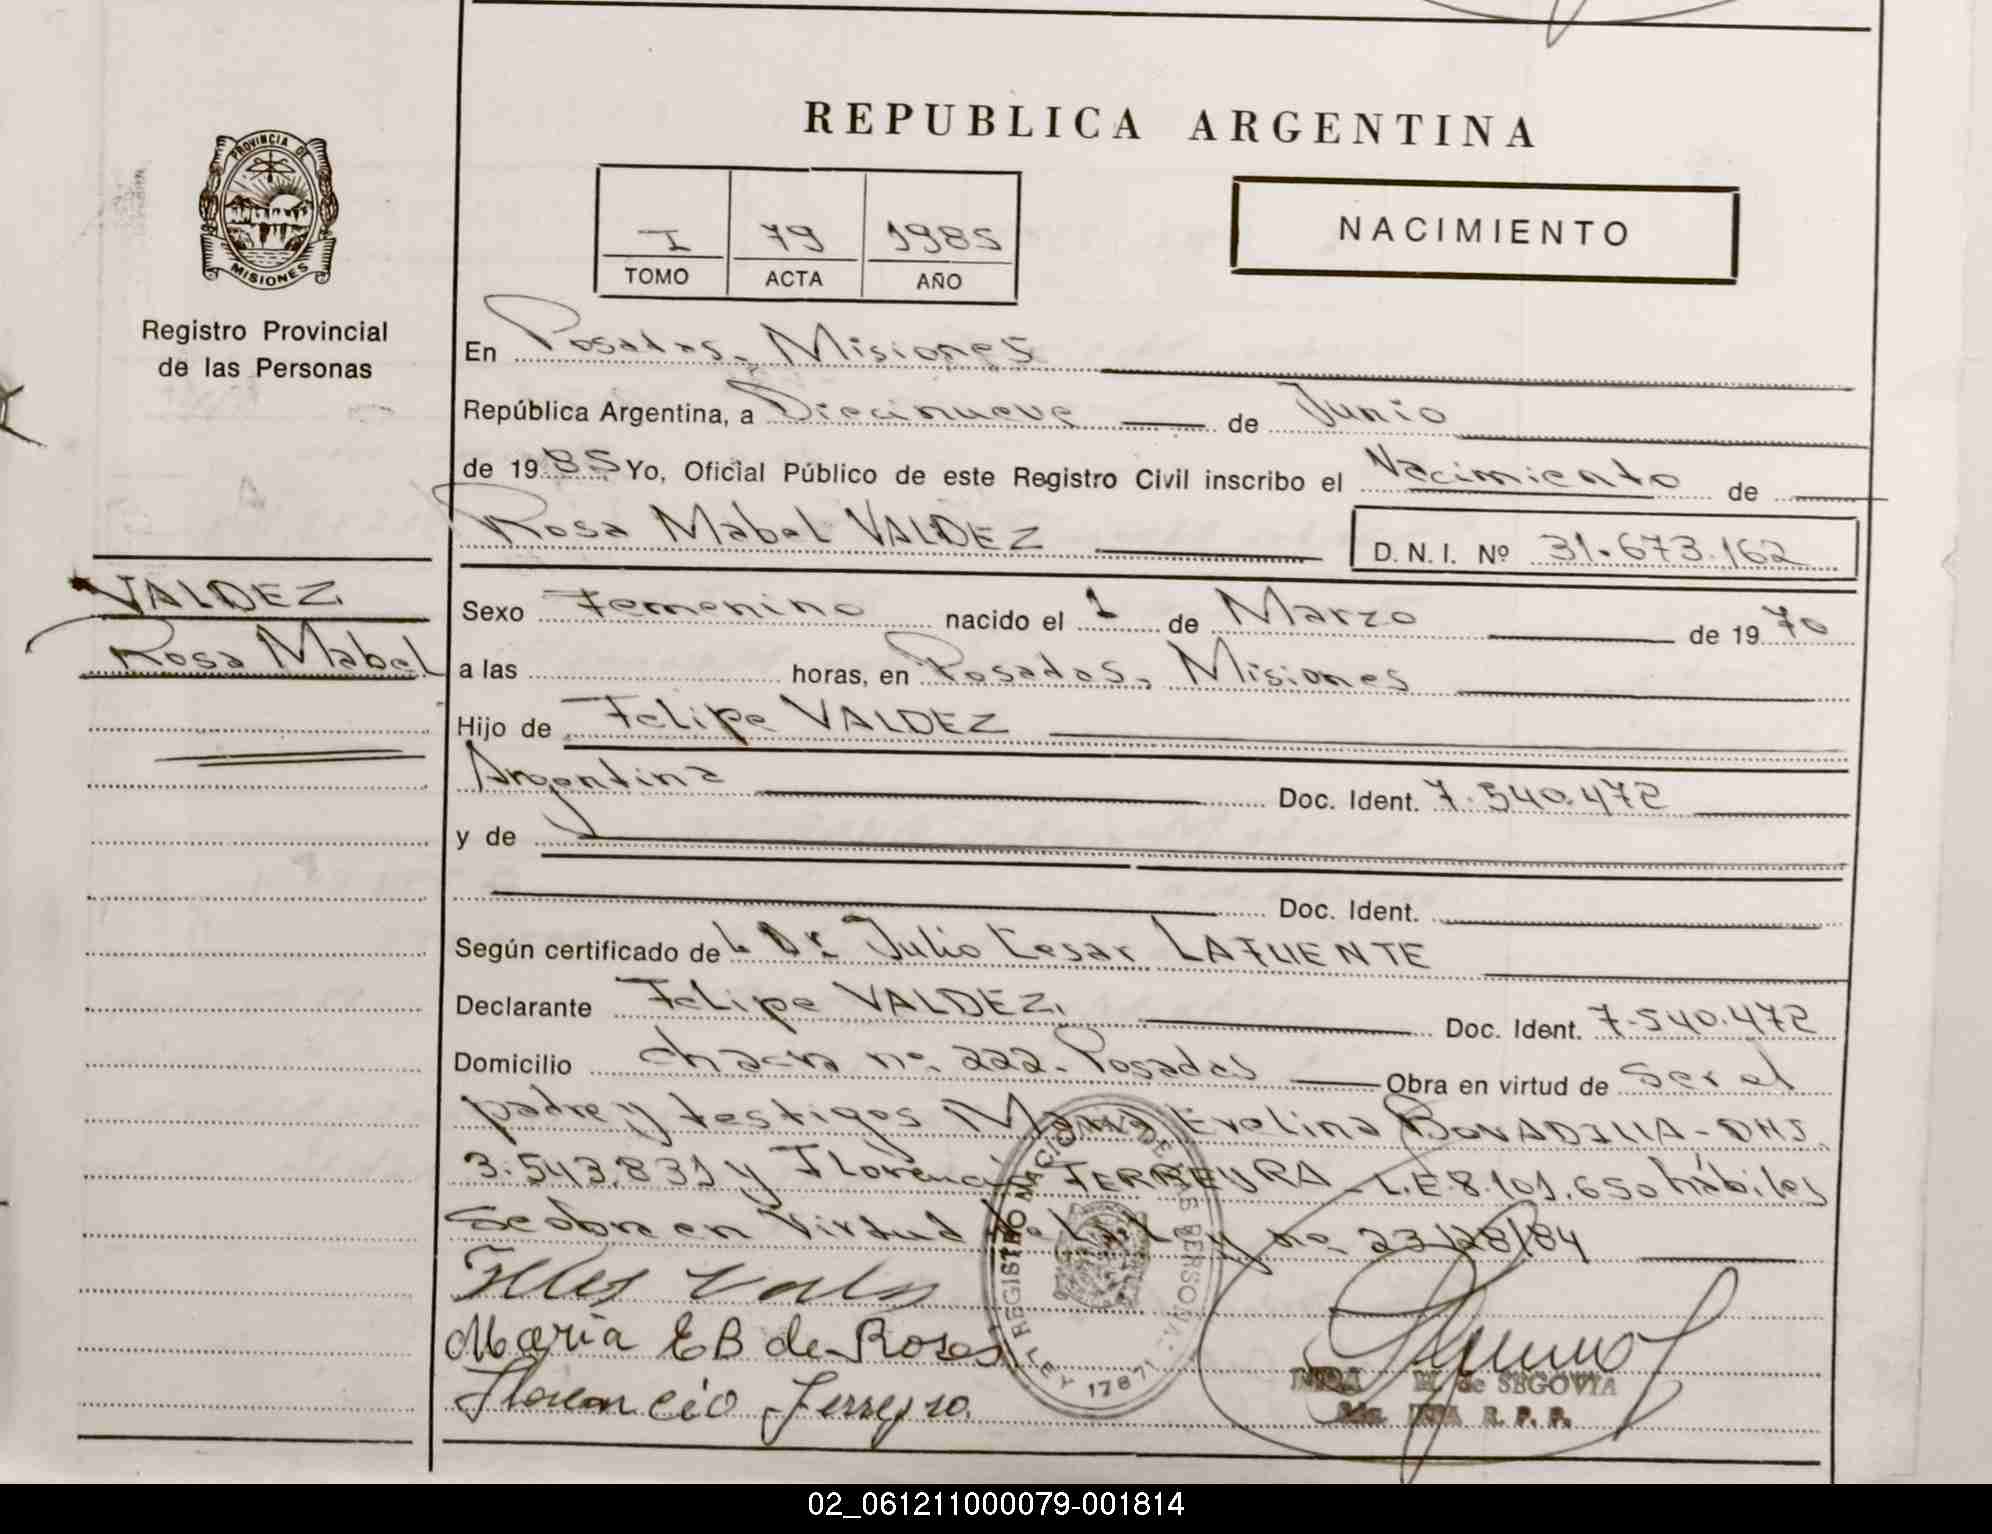 REPUBLICA ARGENTINA
PROVINCIA DE
MISIONES
Registro Provincial
de las Personas
I 79 1985
TOMO ACTA AÑO
NACIMIENTO
En Posadas, Misiones
República Argentina, a Diecinueve de Junio
de 1985 Yo, Oficial Público de este Registro Civil inscribo el Nacimiento de
Rosa Mabel VALDEZ D. N. I. Nº 31.673.162
VALDEZ
Rosa Mabel
Sexo Femenino nacido el 1 de Marzo de 1970
a las horas, en Posadas, Misiones
Hijo de Felipe VALDEZ
Argentina Doc. Ident. 7.540.472
y de
Doc. Ident.
Según certificado de L Dr. Julio Cesar LAFUENTE
Declarante Felipe VALDEZ, Doc. Ident. 7.540.472
Domicilio chacra nº 222. Posadas Obra en virtud de ser el
padre y testigos Evelina BOVADILLA -
3.543.831 y Florencio FERREYRA - L.E 8.101.650 hábiles
se obra en virtud nº 23128/84
María E B de Rosas
Florencio Ferreyra
REGISTRO NACIONAL DE LAS PERSONAS
LEY 17671
M. de SEGOVIA
R. P. P.
02_061211000079-001814